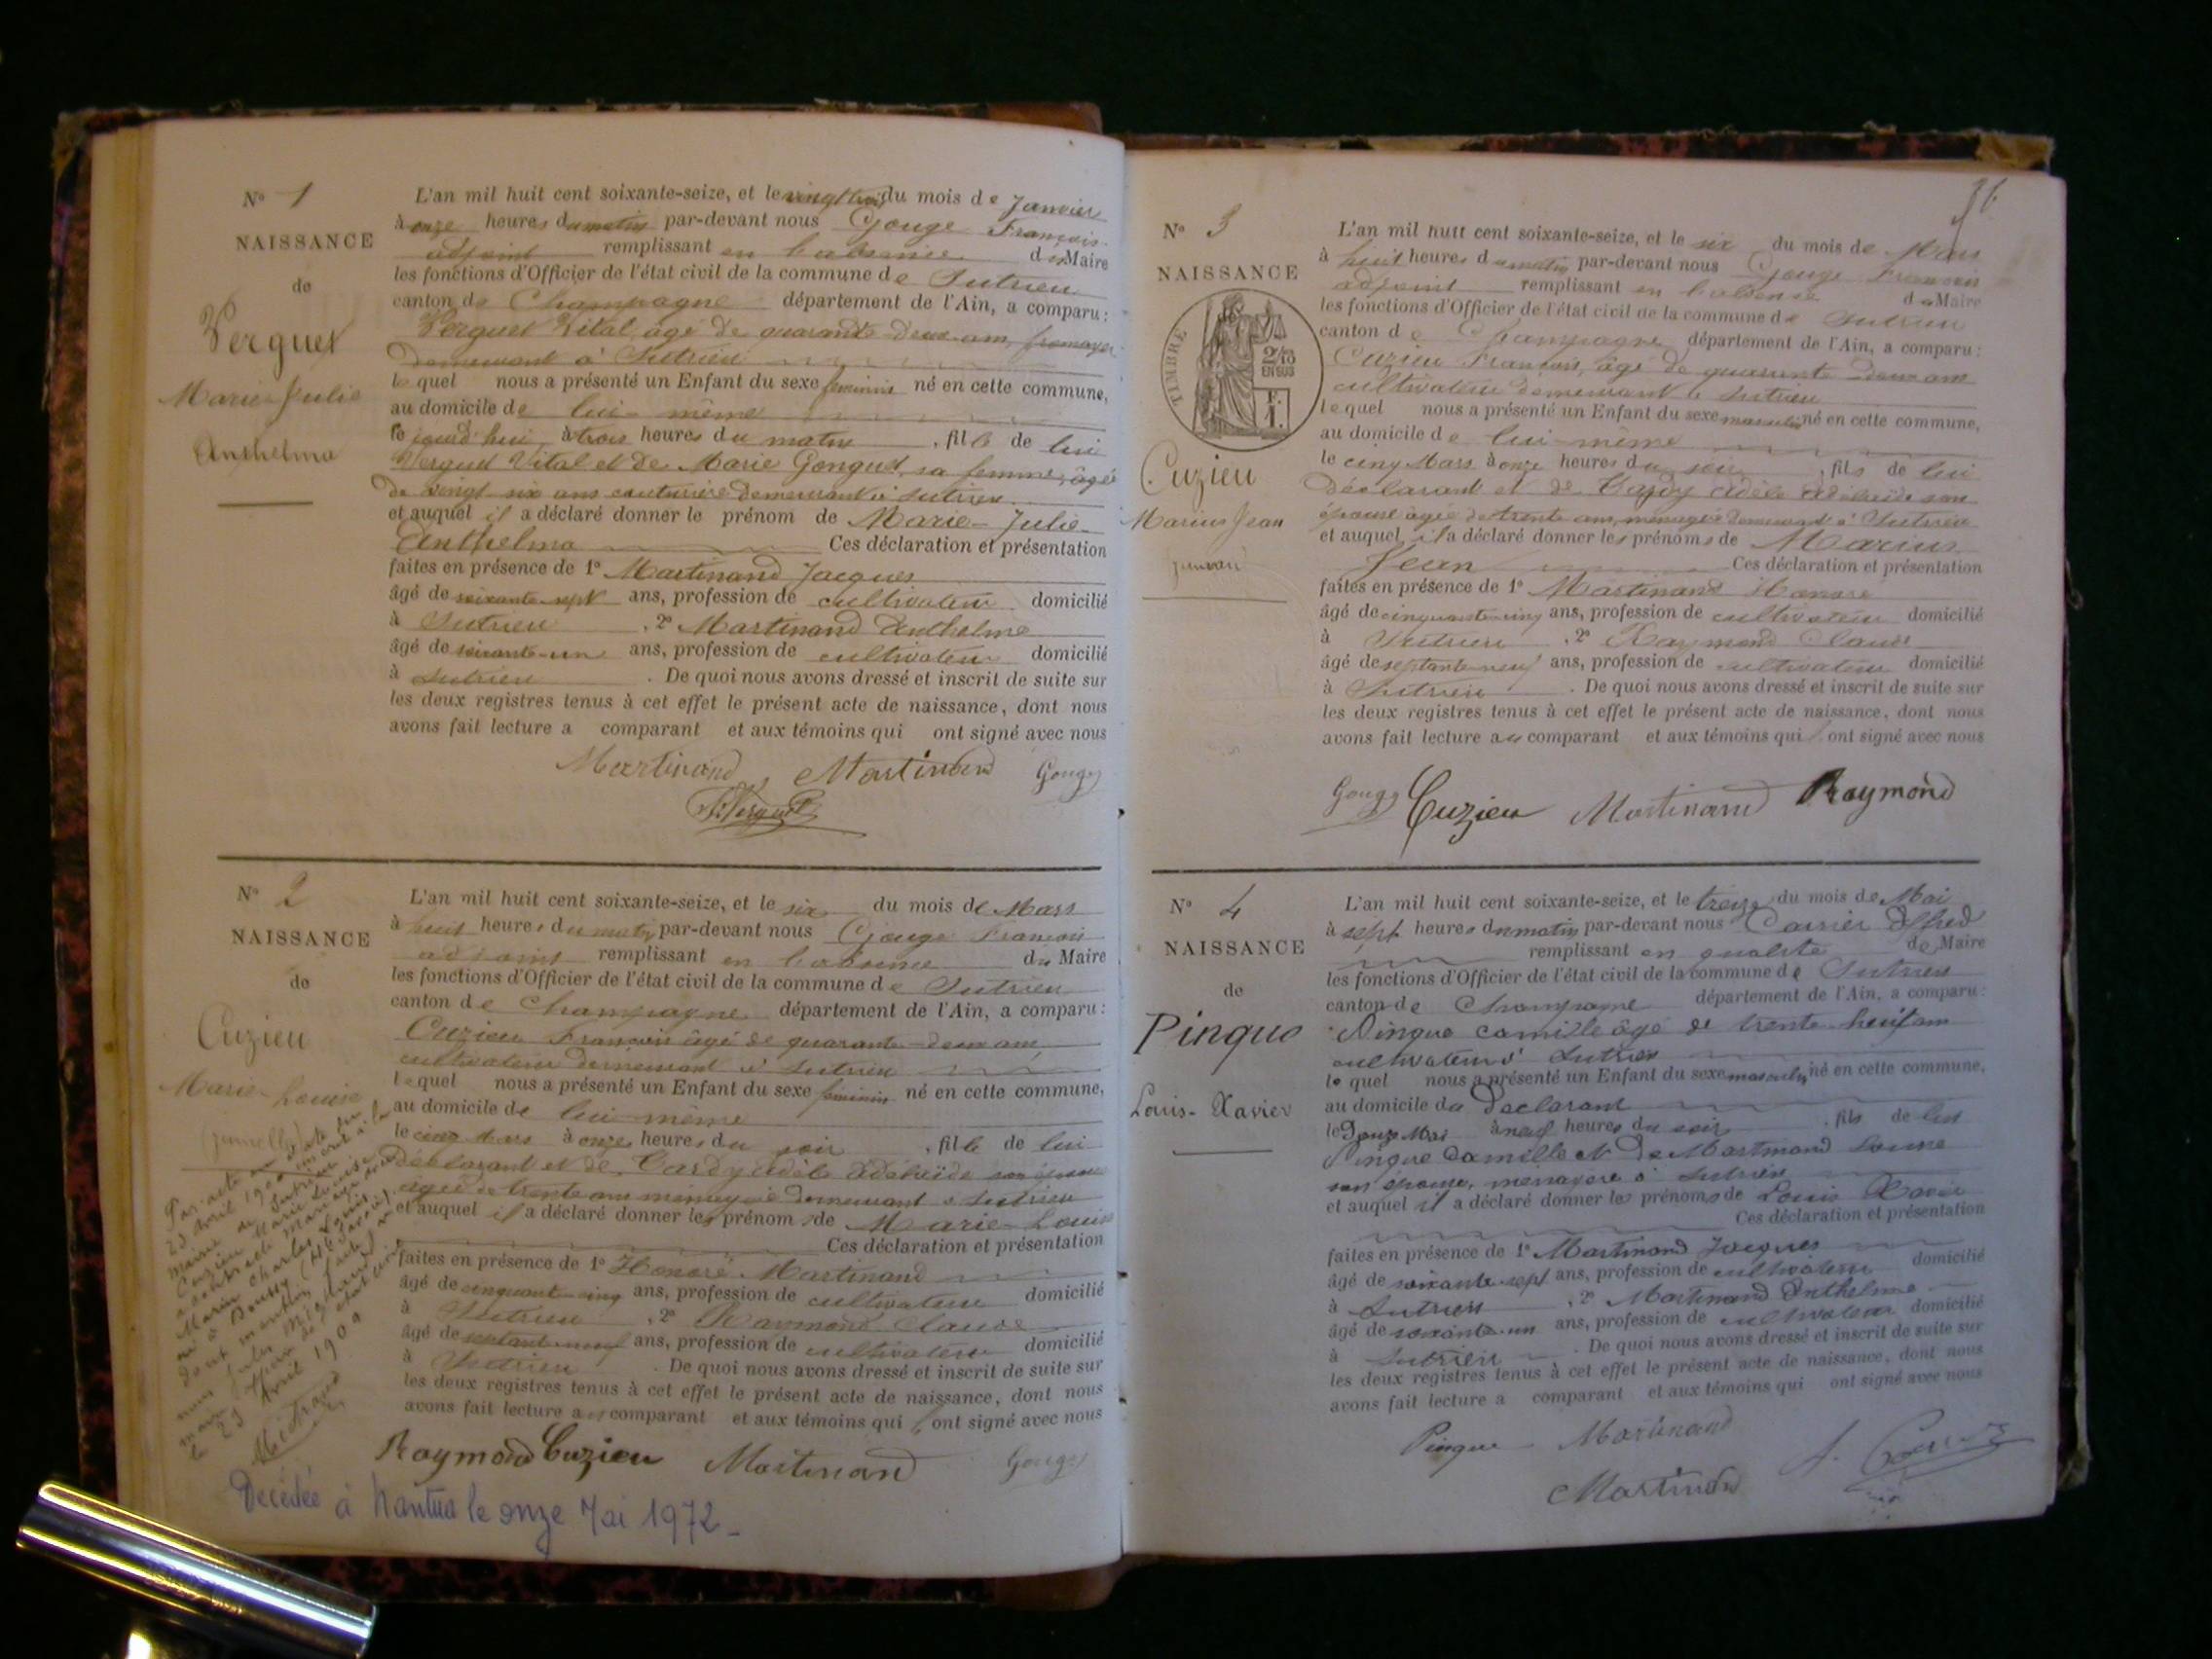 N° 1
NAISSANCE
de
Verguet
Marie-Julie
Anthelma
L'an mil huit cent soixante-seize, et le vingt trois du mois de Janvier
à onze heures du matin par-devant nous Gouge François
adjoint remplissant en l'absence du Maire
les fonctions d'Officier de l'état civil de la commune de Sutrieu
canton de Champagne département de l'Ain, a comparu :
Verguet Vital, âgé de quarante deux ans, fromager
demeurant à Sutrieu
lequel nous a présenté un Enfant du sexe féminin né en cette commune,
au domicile de lui-même
le jourd'hui, à trois heures du matin, fille de lui
Verguet Vital et de Marie Gonguet, sa femme, âgée
de vingt six ans couturière demeurant à Sutrieu
et auquel il a déclaré donner le prénom de Marie-Julie
Anthelma Ces déclaration et présentation
faites en présence de 1° Martinand Jacques
âgé de soixante-sept ans, profession de cultivateur domicilié
à Sutrieu , 2° Martinand Anthelme
âgé de soixante-un ans, profession de cultivateur domicilié
à Sutrieu . De quoi nous avons dressé et inscrit de suite sur
les deux registres tenus à cet effet le présent acte de naissance, dont nous
avons fait lecture a comparant et aux témoins qui ont signé avec nous
Martinand Martinand Gouge
V. Verguet
N° 2
NAISSANCE
de
Cuzieu
Marie-Louise
(jumelle)
Par acte en date du
23 avril 1900 inscrit à la
mairie de Sutrieu
Cuzieu Marie Louise
a contracté mariage avec
Marin Charles Louis
né à Boussy (Hte Savoie)
dont mention faite par
nous Jules Mignard
maire officier de l'état civil
le 23 Avril 1900
L'an mil huit cent soixante-seize, et le six du mois de Mars
à huit heures du matin par-devant nous Gouge François
adjoint remplissant en l'absence du Maire
les fonctions d'Officier de l'état civil de la commune de Sutrieu
canton de Champagne département de l'Ain, a comparu :
Cuzieu François âgé de quarante-deux ans,
cultivateur demeurant à Sutrieu
lequel nous a présenté un Enfant du sexe féminin né en cette commune,
au domicile de lui-même
le cinq Mars à onze heures du soir , fille de lui
déclarant et de Tardy Adèle Adélaïde son épouse
âgée de trente ans ménagère demeurant à Sutrieu
et auquel il a déclaré donner les prénoms de Marie-Louise
Ces déclaration et présentation
faites en présence de 1° Honoré Martinand
âgé de cinquante-cinq ans, profession de cultivateur domicilié
à Sutrieu , 2° Raymond Claude
âgé de septante-neuf ans, profession de cultivateur domicilié
à Sutrieu . De quoi nous avons dressé et inscrit de suite sur
les deux registres tenus à cet effet le présent acte de naissance, dont nous
avons fait lecture au comparant et aux témoins qui ont signé avec nous
Raymond Cuzieu Martinand Gouge
Décédée à Nantua le onze Mai 1972 -
36
N° 3
NAISSANCE
TIMBRE
2/10
EN SUS
F.
1.
Cuzieu
Marius Jean
jumeau
L'an mil huit cent soixante-seize, et le six du mois de Mars
à huit heures du matin par-devant nous Gouge François
adjoint remplissant en l'absence du Maire
les fonctions d'Officier de l'état civil de la commune de Sutrieu
canton de Champagne département de l'Ain, a comparu :
Cuzieu François, âgé de quarante deux ans
cultivateur demeurant à Sutrieu
lequel nous a présenté un Enfant du sexe masculin né en cette commune,
au domicile de lui-même
le cinq Mars à onze heures du soir , fils de lui
déclarant et de Tardy Adèle Adélaïde son
épouse âgée de trente ans, ménagère demeurant à Sutrieu
et auquel il a déclaré donner les prénoms de Marius
Jean Ces déclaration et présentation
faites en présence de 1° Martinand Honoré
âgé de cinquante-cinq ans, profession de cultivateur domicilié
à Sutrieu , 2° Raymond Claude
âgé de septante-neuf ans, profession de cultivateur domicilié
à Sutrieu . De quoi nous avons dressé et inscrit de suite sur
les deux registres tenus à cet effet le présent acte de naissance, dont nous
avons fait lecture au comparant et aux témoins qui ont signé avec nous
Gouge Cuzieu Martinand Raymond
N° 4
NAISSANCE
de
Pingue
Louis-Xavier
L'an mil huit cent soixante-seize, et le treize du mois de Mai
à sept heures du matin par-devant nous Carrier Alfred
remplissant en qualité de Maire
les fonctions d'Officier de l'état civil de la commune de Sutrieu
canton de Champagne département de l'Ain, a comparu :
Pingue Camille âgé de trente-huit ans
cultivateur à Sutrieu
lequel nous a présenté un Enfant du sexe masculin né en cette commune,
au domicile du déclarant
le douze Mai à neuf heures du soir , fils de lui
Pingue Camille et de Martinand Louise
son épouse, ménagère à Sutrieu
et auquel il a déclaré donner les prénoms de Louis Xavier
Ces déclaration et présentation
faites en présence de 1° Martinand Jacques
âgé de soixante-sept ans, profession de cultivateur domicilié
à Sutrieu , 2° Martinand Anthelme
âgé de soixante-un ans, profession de cultivateur domicilié
à Sutrieu . De quoi nous avons dressé et inscrit de suite sur
les deux registres tenus à cet effet le présent acte de naissance, dont nous
avons fait lecture a comparant et aux témoins qui ont signé avec nous
Pingue Martinand
Martinand A. Carrier